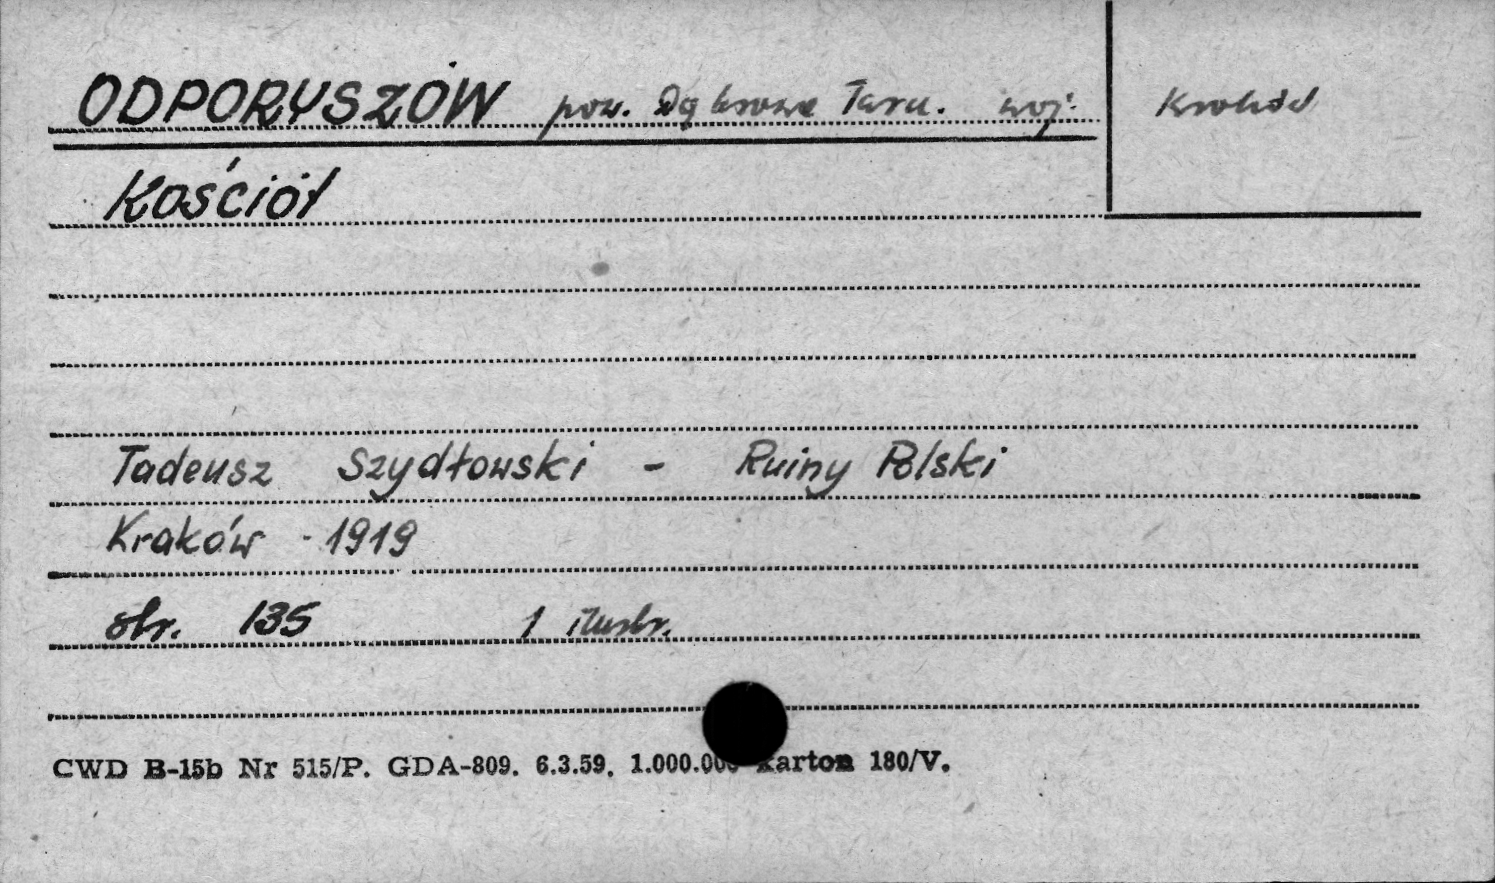 ODPORYSZÓW pow. Dąbrowa Tarn. woj. Kraków
Kościół
Tadeusz Szydłowski - Ruiny Polski
Kraków - 1919
str. 135 1 ilustr.
CWD B-15b Nr 515/P. GDA-809. 6.3.59. 1.000.000 karton 180/V.